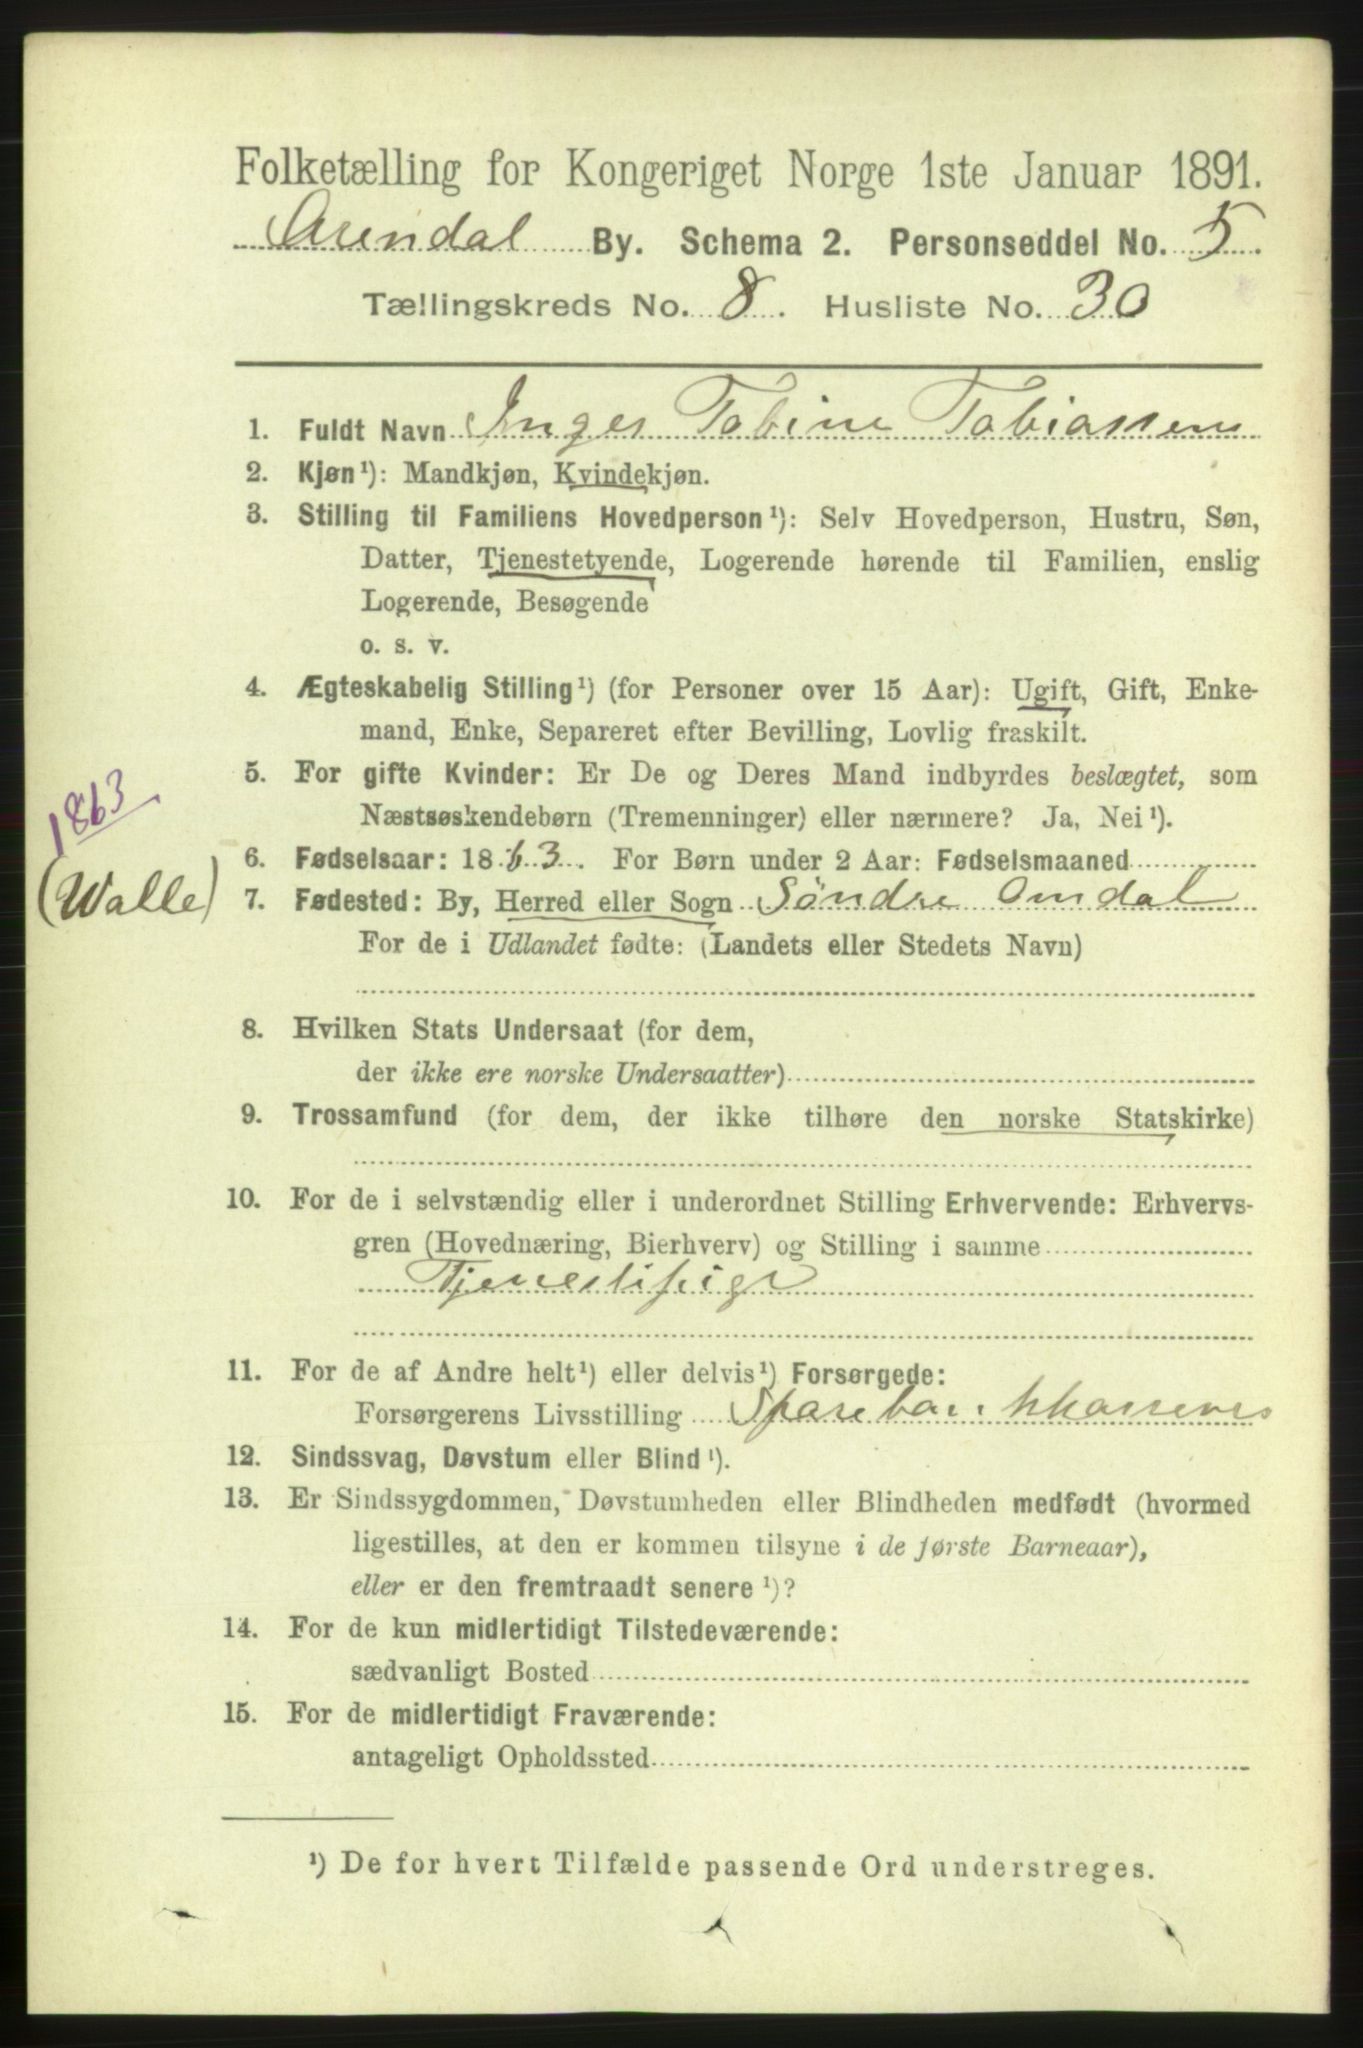 Folketælling for Kongeriget Norge 1ste Januar 1891.
Arendal By. Schema 2. Personseddel No. 5.
Tællingskreds No. 8. Husliste No. 30
1. Fuldt Navn Inger Tobine Tobiassen
2. Kjøn¹): Mandkjøn, Kvindekjøn.
3. Stilling til Familiens Hovedperson¹): Selv Hovedperson, Hustru, Søn,
Datter, Tjenestetyende, Logerende hørende til Familien, enslig
Logerende, Besøgende
o. s. v.
4. Ægteskabelig Stilling¹) (for Personer over 15 Aar): Ugift, Gift, Enke-
mand, Enke, Separeret efter Bevilling, Lovlig fraskilt.
5. For gifte Kvinder: Er De og Deres Mand indbyrdes beslægtet, som
Næstsøskendebørn (Tremenninger) eller nærmere? Ja, Nei¹).
1863
6. Fødselsaar: 1863. For Børn under 2 Aar: Fødselsmaaned
(Walle)
7. Fødested: By, Herred eller Sogn Söndre Omdal
For de i Udlandet fødte: (Landets eller Stedets Navn)
8. Hvilken Stats Undersaat (for dem,
der ikke ere norske Undersaatter)
9. Trossamfund (for dem, der ikke tilhøre den norske Statskirke)
10. For de i selvstændig eller i underordnet Stilling Erhvervende: Erhvervs-
gren (Hovednæring, Bierhverv) og Stilling i samme
Tjenestepige
11. For de af Andre helt¹) eller delvis¹) Forsørgede:
Forsørgerens Livsstilling
12. Sindssvag, Døvstum eller Blind¹).
13. Er Sindssygdommen, Døvstumheden eller Blindheden medfødt (hvormed
ligestilles, at den er kommen tilsyne i de første Barneaar),
eller er den fremtraadt senere¹)?
14. For de kun midlertidigt Tilstedeværende:
sædvanligt Bosted
15. For de midlertidigt Fraværende:
antageligt Opholdssted
¹) De for hvert Tilfælde passende Ord understreges.